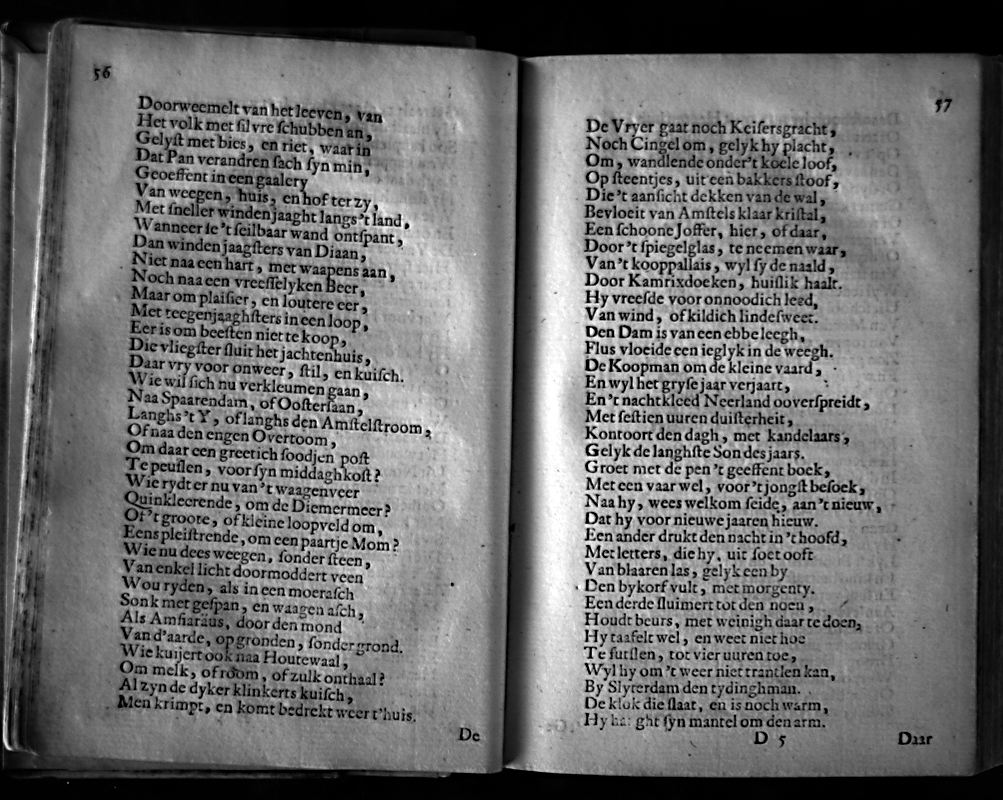 56
Doorweemelt van het leeven, van
Het volk met silvre schubben an,
Gelyst met bies, en riet, waar in
Dat Pan verandren sach syn min,
Geoeffent in een gaalery
Van weegen, huis, en hof ter zy,
Met sneller winden jaaght langs 't land,
Wanneer se 't seilbaar wand ontspant,
Dan winden jaagsters van Diaan,
Niet naa een hart, met waapens aan,
Noch naa een vreesselyken Beer,
Maar om plaisier, en loutere eer,
Met teegenjaaghsters in een loop,
Eer is om beesten niet te koop,
Die vliegster sluit het jachtenhuis,
Daar vry voor onweer, stil, en kuisch.
Wie wil sich nu verkleumen gaan,
Naa Spaarendam, of Oostersaan,
Langhs 't Y, of langhs den Amstelstroom,
Of naa den engen Overtoom,
Om daar een greetich soodjen post
Te peuslen, voor syn middaghkost?
Wie rydt er nu van 't waagenveer
Quinkleerende, om de Diemermeer?
Of 't groote, of kleine loopveld om,
Eens pleistrende, om een paartje Mom?
Wie nu dees weegen, sonder steen,
Van enkel licht doormoddert veen
Wou ryden, als in een moerasch
Sonk met gespan, en waagen asch,
Als Amfiaräus, door den mond
Van d'aarde, op gronden, sonder grond.
Wie kuijert ook naa Houtewaal,
Om melk, of room, of zulk onthaal?
Al zyn de dyker klinkerts kuisch,
Men krimpt, en komt bedrekt weer t'huis.
De
57
De Vryer gaat noch Keisersgracht,
Noch Cingel om, gelyk hy placht,
Om, wandlende onder't koele loof,
Op steentjes, uit een bakkers stoof,
Die 't aansicht dekken van de wal,
Bevloeit van Amstels klaar kristal,
Een schoone Joffer, hier, of daar,
Door 't spiegelglas, te neemen waar,
Van 't kooppallais, wyl sy de naald,
Door Kamrixdoeken, huislik haalt.
Hy vreesde voor onnoodich leed,
Van wind, of kildich lindesweet.
Den Dam is van een ebbe leegh,
Flus vloeide een ieglyk in de weegh.
De Koopman om de kleine vaard,
En wyl het gryse jaar verjaart,
En 't nachtkleed Neerland ooverspreidt,
Met sestien uuren duisterheit,
Kontoort den dagh, met kandelaars,
Gelyk de langhste Son des jaars.
Groet met de pen 't geeffent boek,
Met een vaar wel, voor 't jongst besoek,
Naa hy, wees welkom seide, aan 't nieuw,
Dat hy voor nieuwe jaaren hieuw.
Een ander drukt den nacht in 't hoofd,
Met letters, die hy, uit soet ooft
Van blaaren las, gelyk een by
Den bykorf vult, met morgenty.
Een derde sluimert tot den noen,
Houdt beurs, met weinigh daar te doen,
Hy taafelt wel, en weet niet hoe
Te futslen, tot vier uuren toe,
Wyl hy om 't weer niet trantlen kan,
By Slyterdam den tydinghman.
De klok die slaat, en is noch warm,
Hy syn mantel om den arm.
D 5
Daar